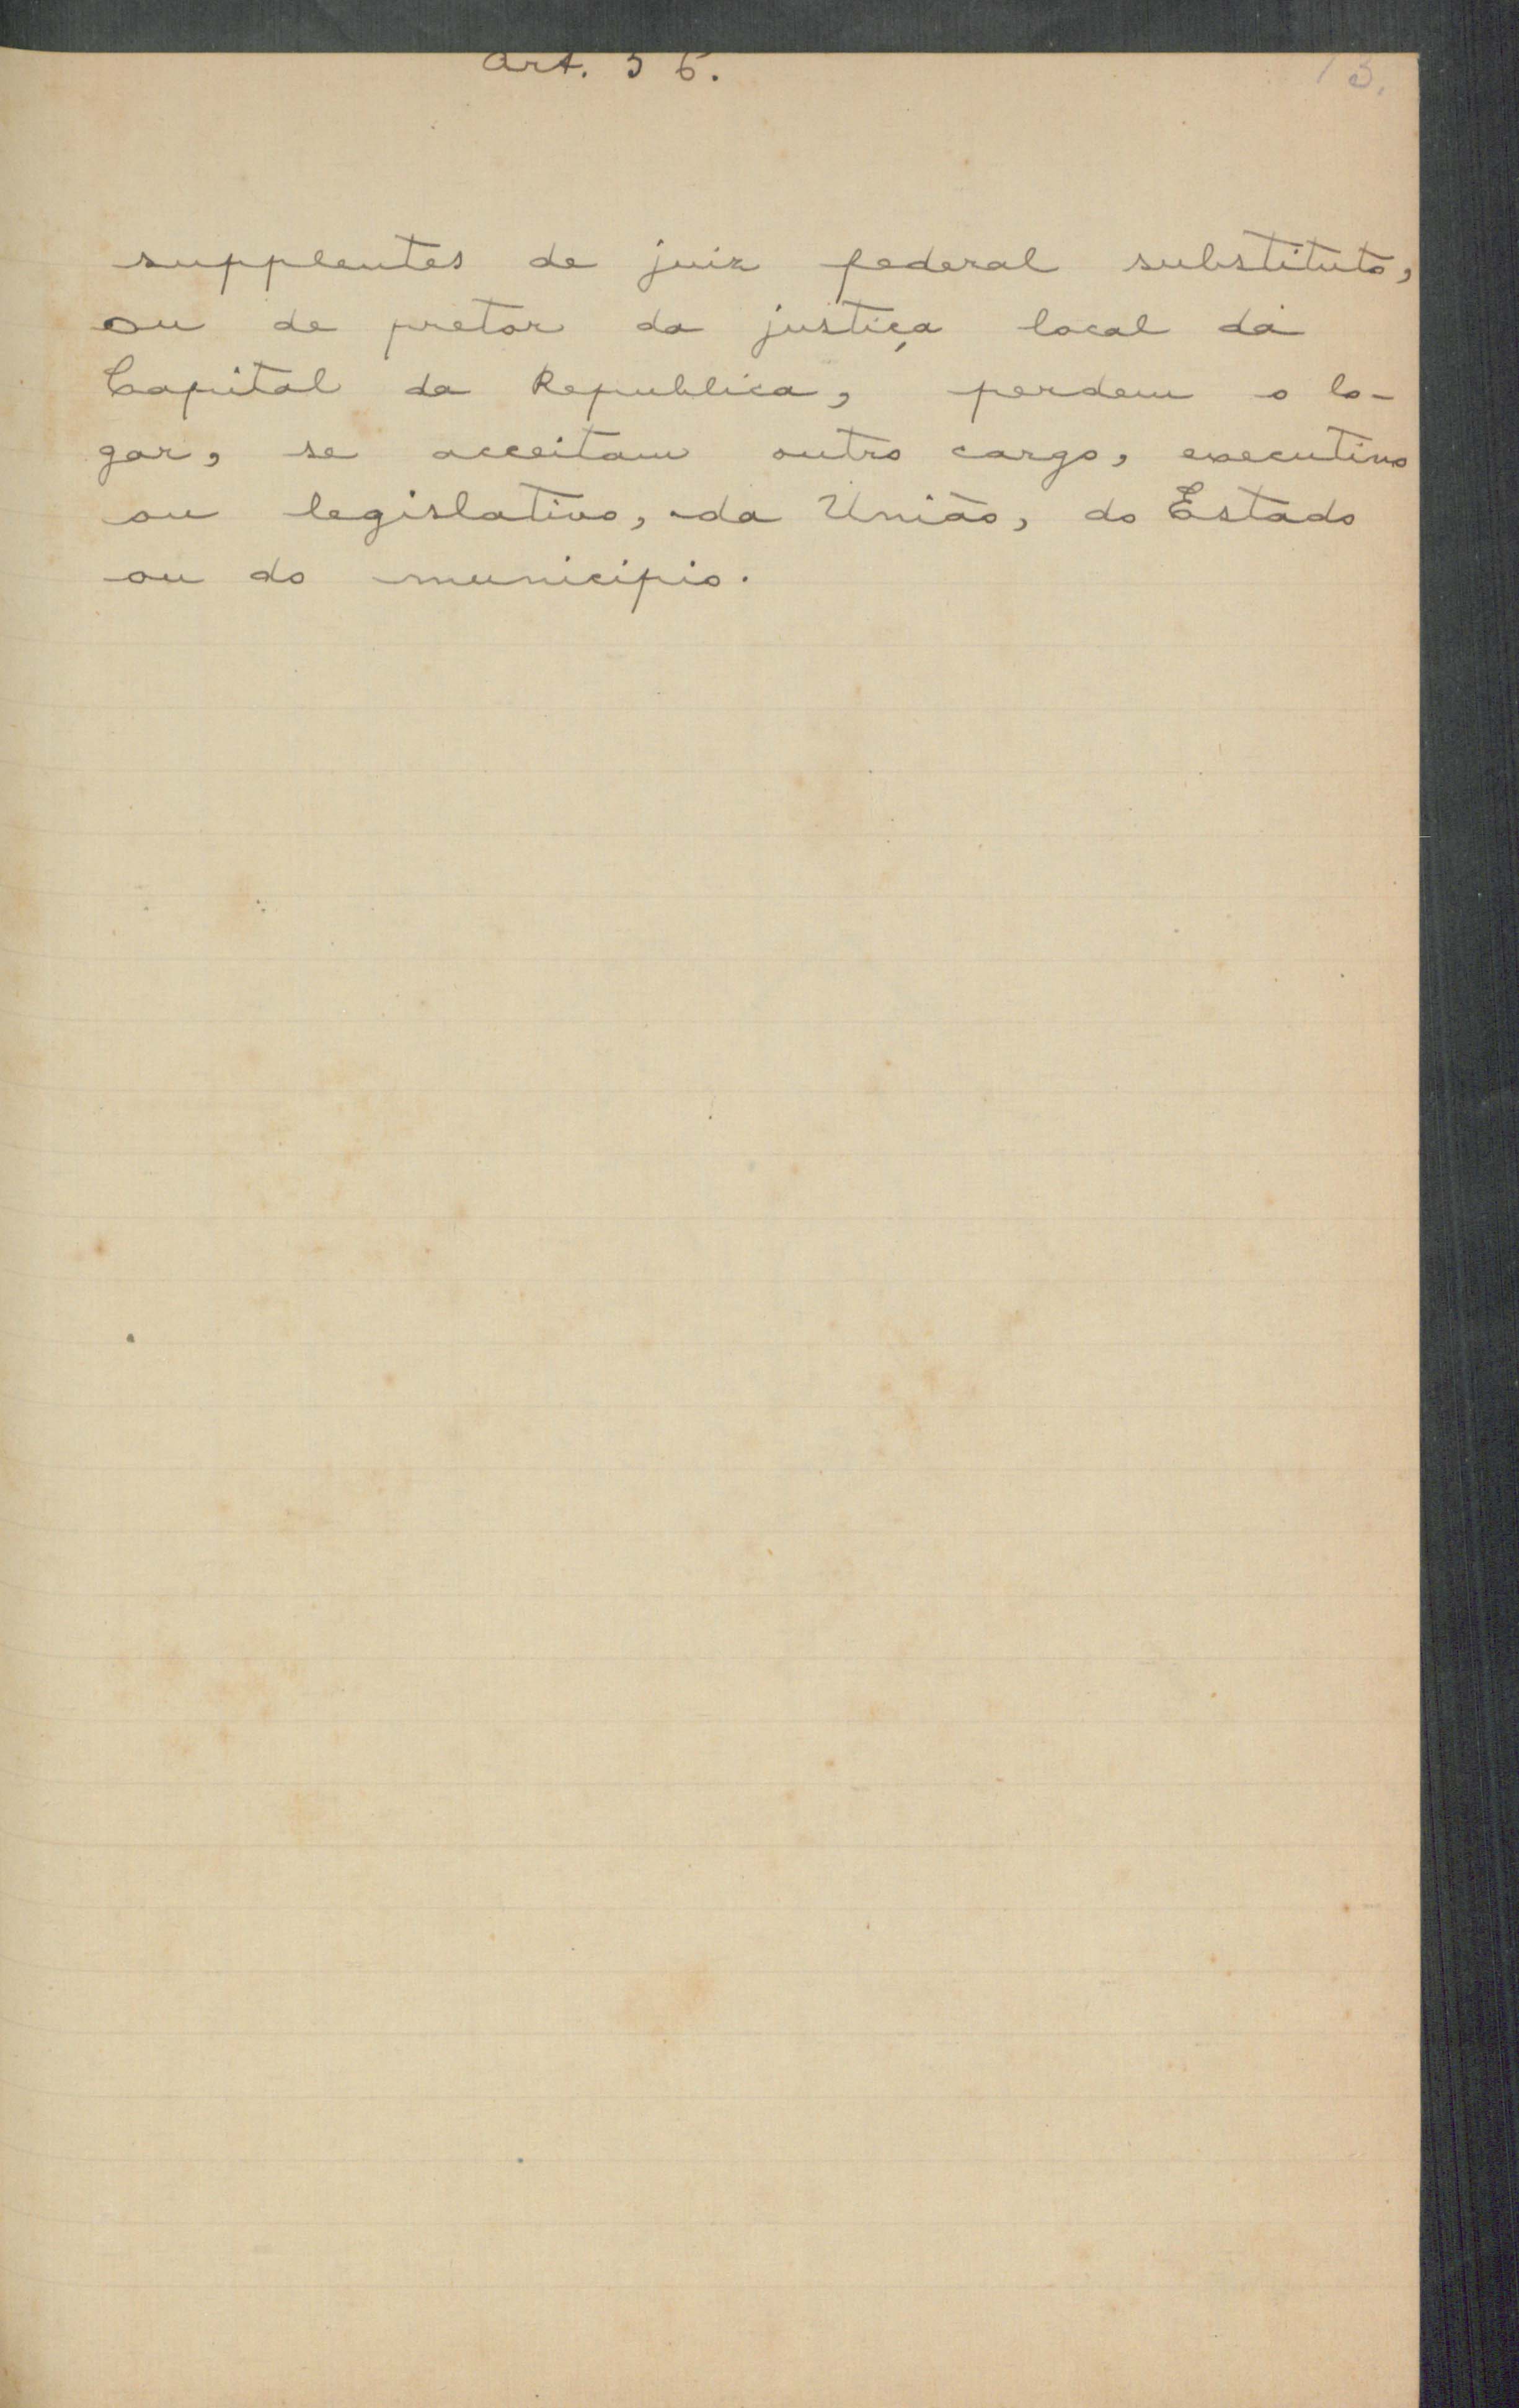 Art. 56.
13.
supplentes de juiz federal substituto,
ou de pretor da justiça local da
Capital da Republica, perdem o lo-
gar, se acceitam outro cargo, executivo
ou legislativo, da União, do Estado
ou do municipio.